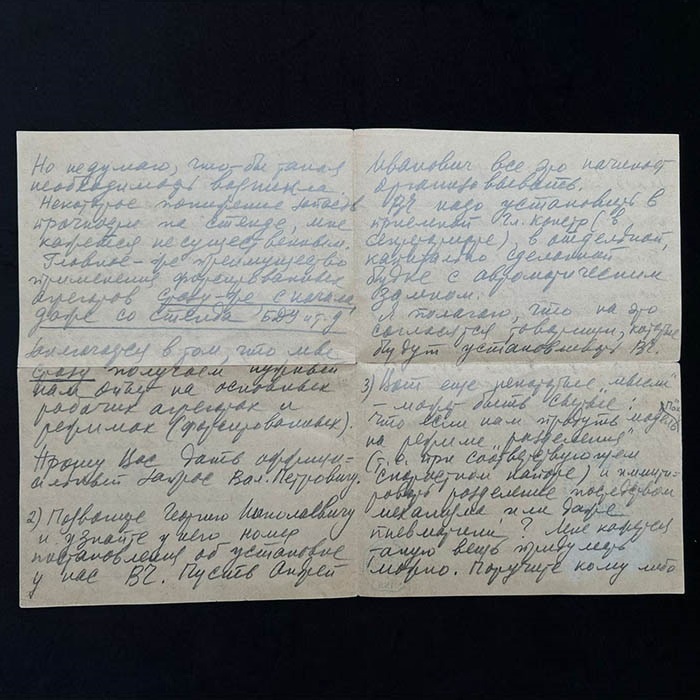 Но не думаю, что-бы такая
необходимость возникла.
Некоторое понижение запасов
прочности на стенде, мне
кажется не существенным.
Главное-же преимущество
применения форсированных
агрегатов сразу-же с начала,
даже со стенда БДУ и т.д.
Заключается в том, что мы
сразу получаем нужный
нам опыт на основных
рабочих агрегатах и
режимах (форсированных).
Прошу Вас дать официи-
альный запрос Вал. Петровичу.
2) Позвоните Георгию Николаевичу
и узнайте у него номер
постановления об установке
у нас ВЧ. Пусть Андрей
Иванович все это начинает
организовывать.
ВЧ надо установить в
приемной Гл. констр. (в
секретариате), в отдельной,
капитально сделанной
будке с автоматическим
замком.
Я полагаю, что на это
согласятся товарищи, которые
будут устанавливать ВЧ.
3) Вот еще некоторые „мысли"
– может быть свежие:
что если нам продуть модель
на режиме „разделения"
(т.е. при соответствующем
скоростном напоре) и имити-
ровать разделение посредством
механизма или даже
пневматики? Мне кажется
такую вещь придумать
можно. Поручите кому либо